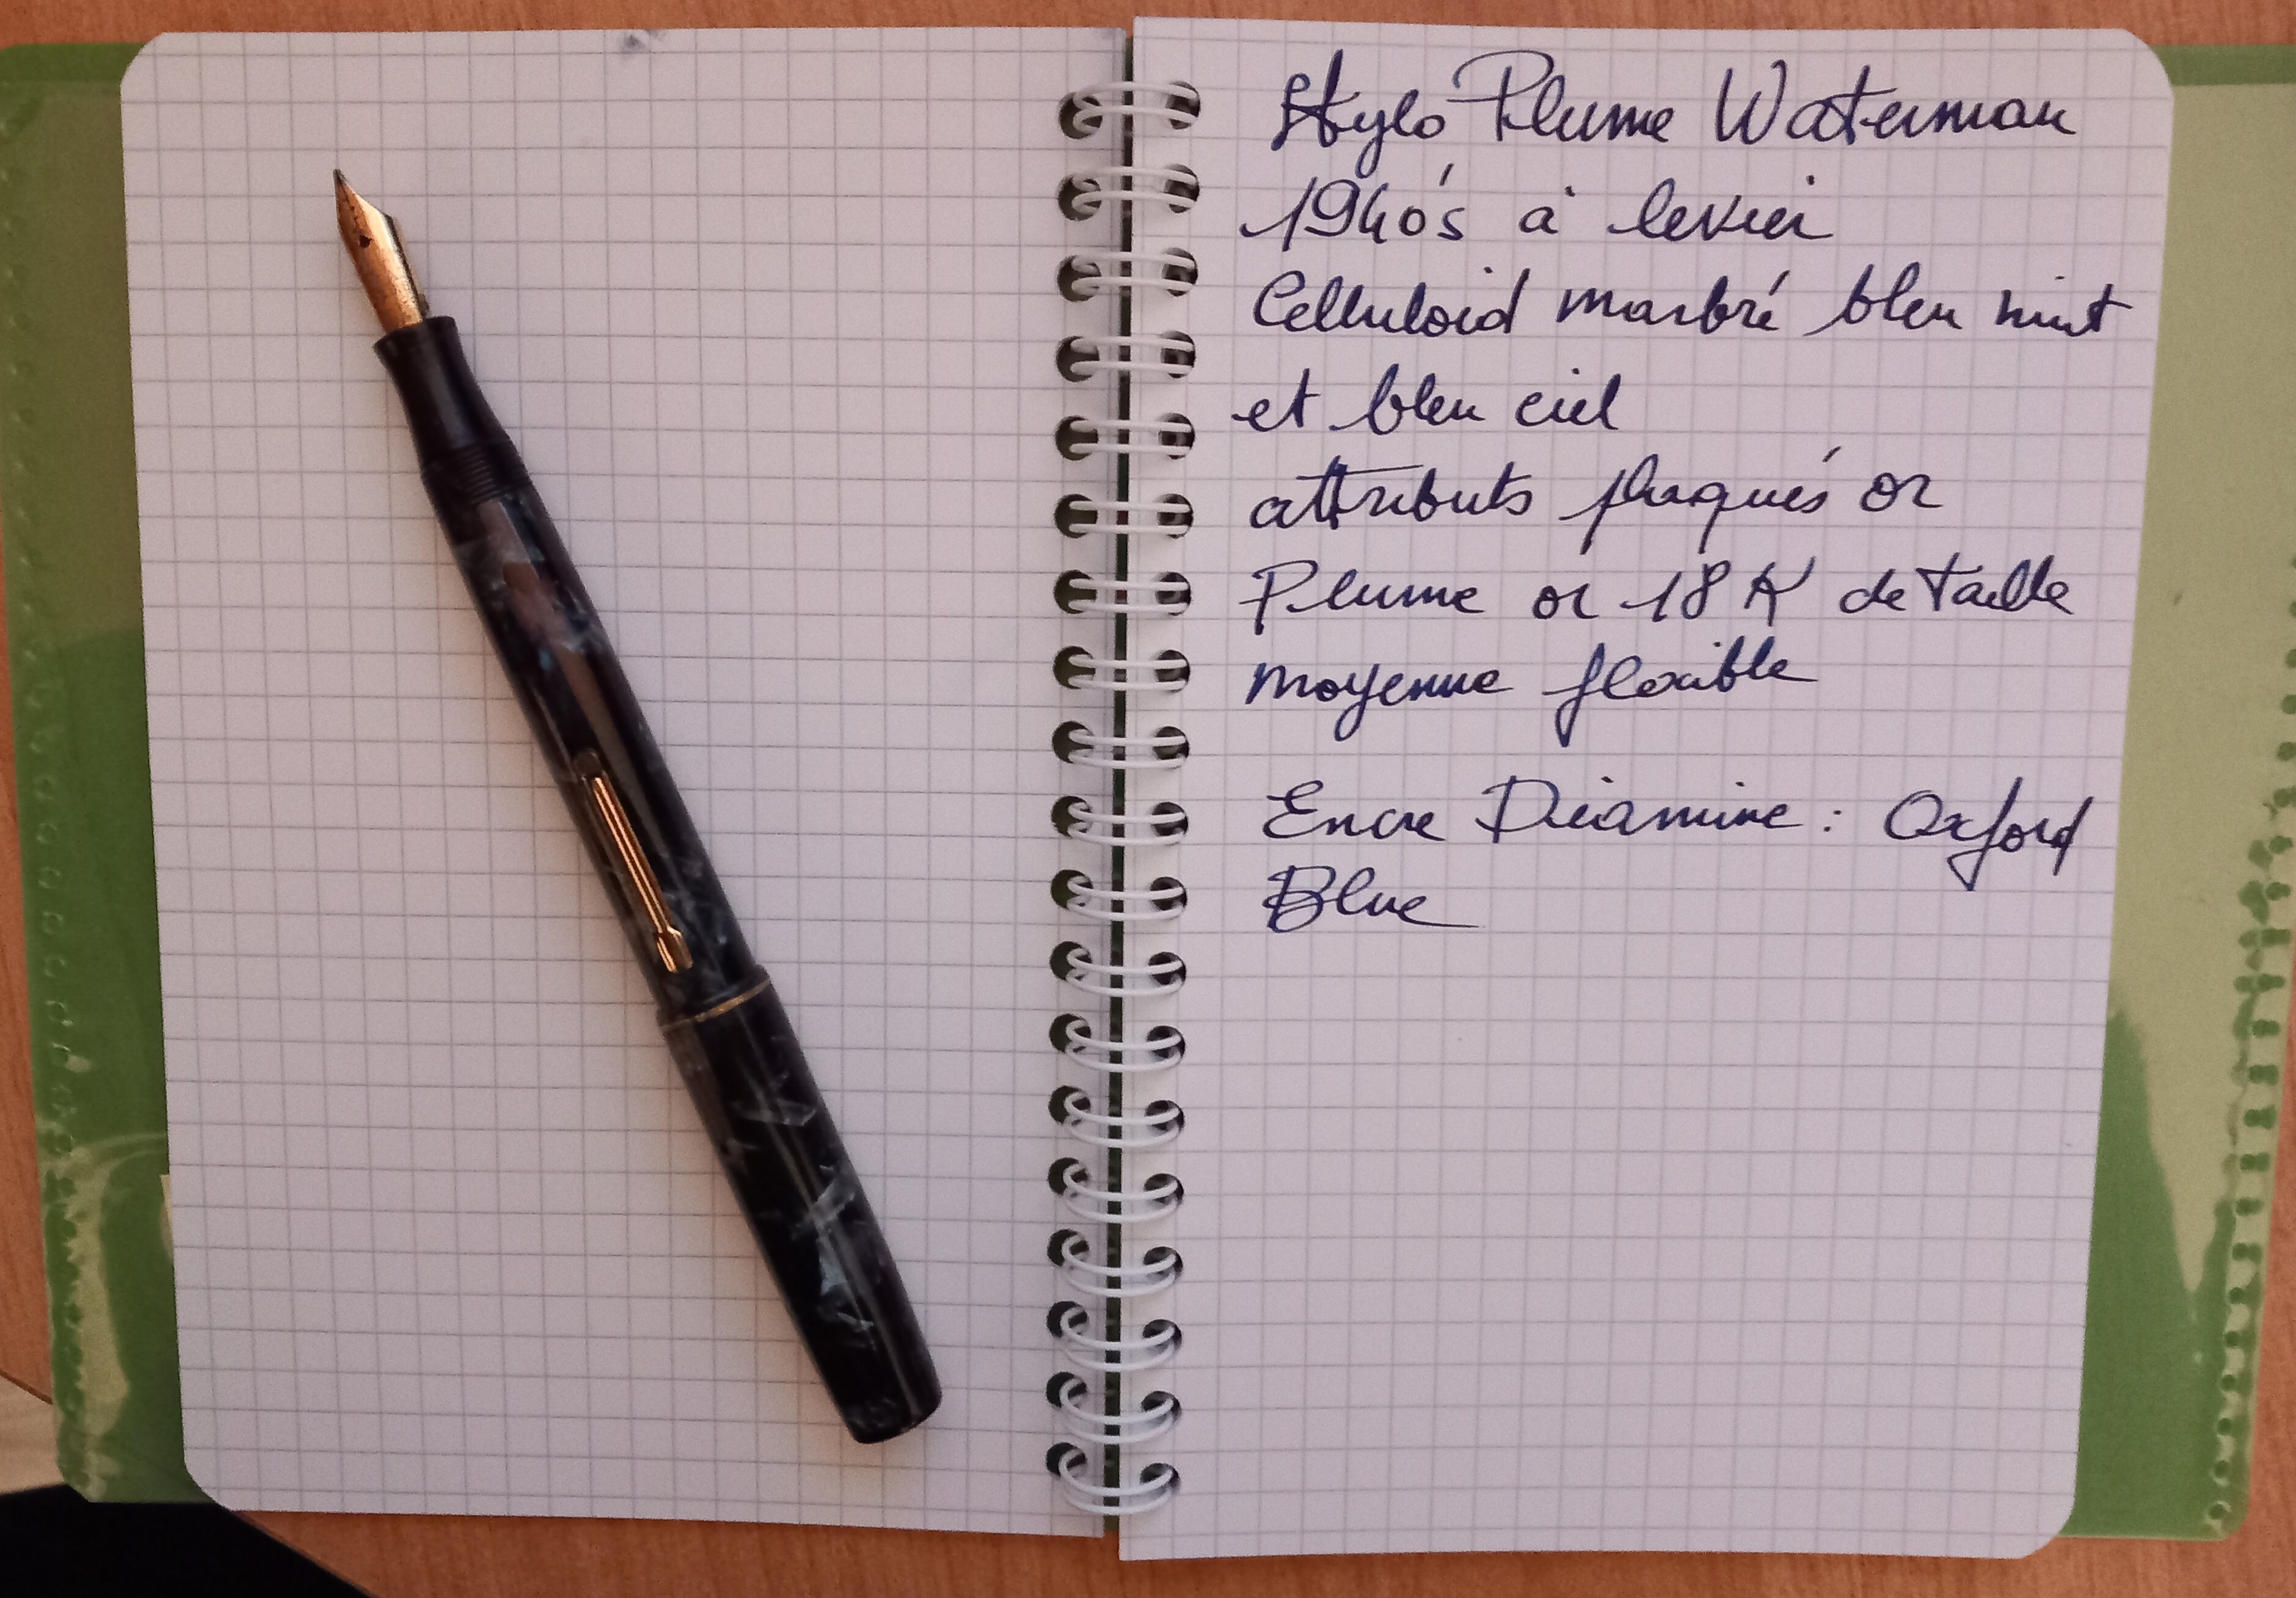 Stylo Plume Waterman
1940's à levier
Celluloid marbré bleu nuit
et bleu ciel
attributs plaqués or
Plume or 18 K de taille
moyenne flexible
Encre Diamine : Oxford
Blue